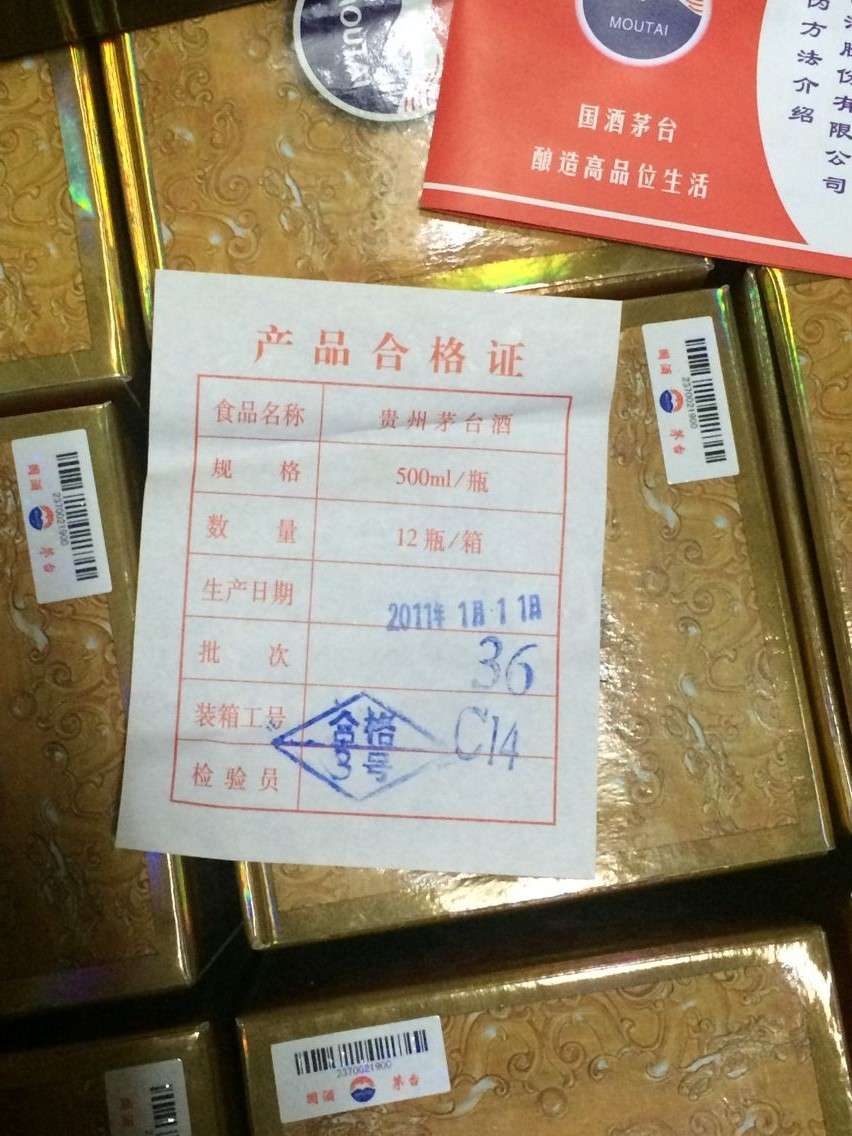 MOUTAI
MOUTAI
国酒茅台
酿造高品位生活
伪方法介绍
股份有限公司
产品合格证
食品名称 贵州茅台酒
规格 500ml/瓶
数量 12瓶/箱
生产日期 2011年1月11日
批次 36
装箱工号 C14
检验员
合格
3号
国酒 茅台
2370021900
国酒 茅台
2370021900
2370021900
国酒 茅台
国酒